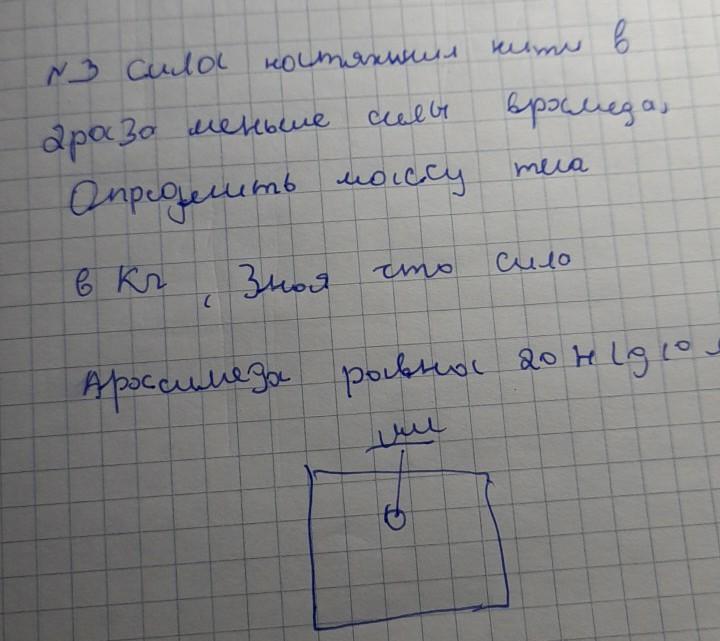 N3 Сила натяжения нити в
2 раза меньше силы Архимеда,
Определить массу тела
в Кг, Зная что сила
Архимеда равна 20 Н (g 10